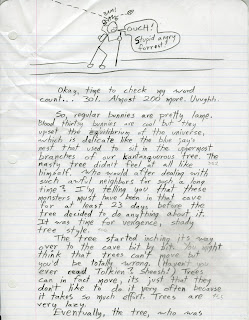 BAM!
OUCH!
Stupid angry
forrest!
Okay, time to check my word
count... 301. Almost 200 more. Uuughh.
So, regular bunnies are pretty lame.
Blood thirsty bunnies are cool but they
upset the equilibrium of the universe,
which is delicate like the blue jay's
nest that used to sit in the uppermost
branches of our kantangerous tree. The
nasty tree didn't feel at all like
himself. Who would after dealing with
such awful neighbors for such a long
time? I'm telling you that these
monsters must have been in that cave
for at least 23 days before the
tree decided to do anything about it.
It was time for vengence, shady
tree style.
The tree started inching its way
over to the cave bit by bit. You might
think that trees can't move but
you'd be totally wrong. (Haven't you
ever read Tolkien? Sheesh!) Trees
can in fact move, its just that they
don't like to do it very often because
it takes so much effort. Trees are
very lazy.
Eventually, the tree, who was